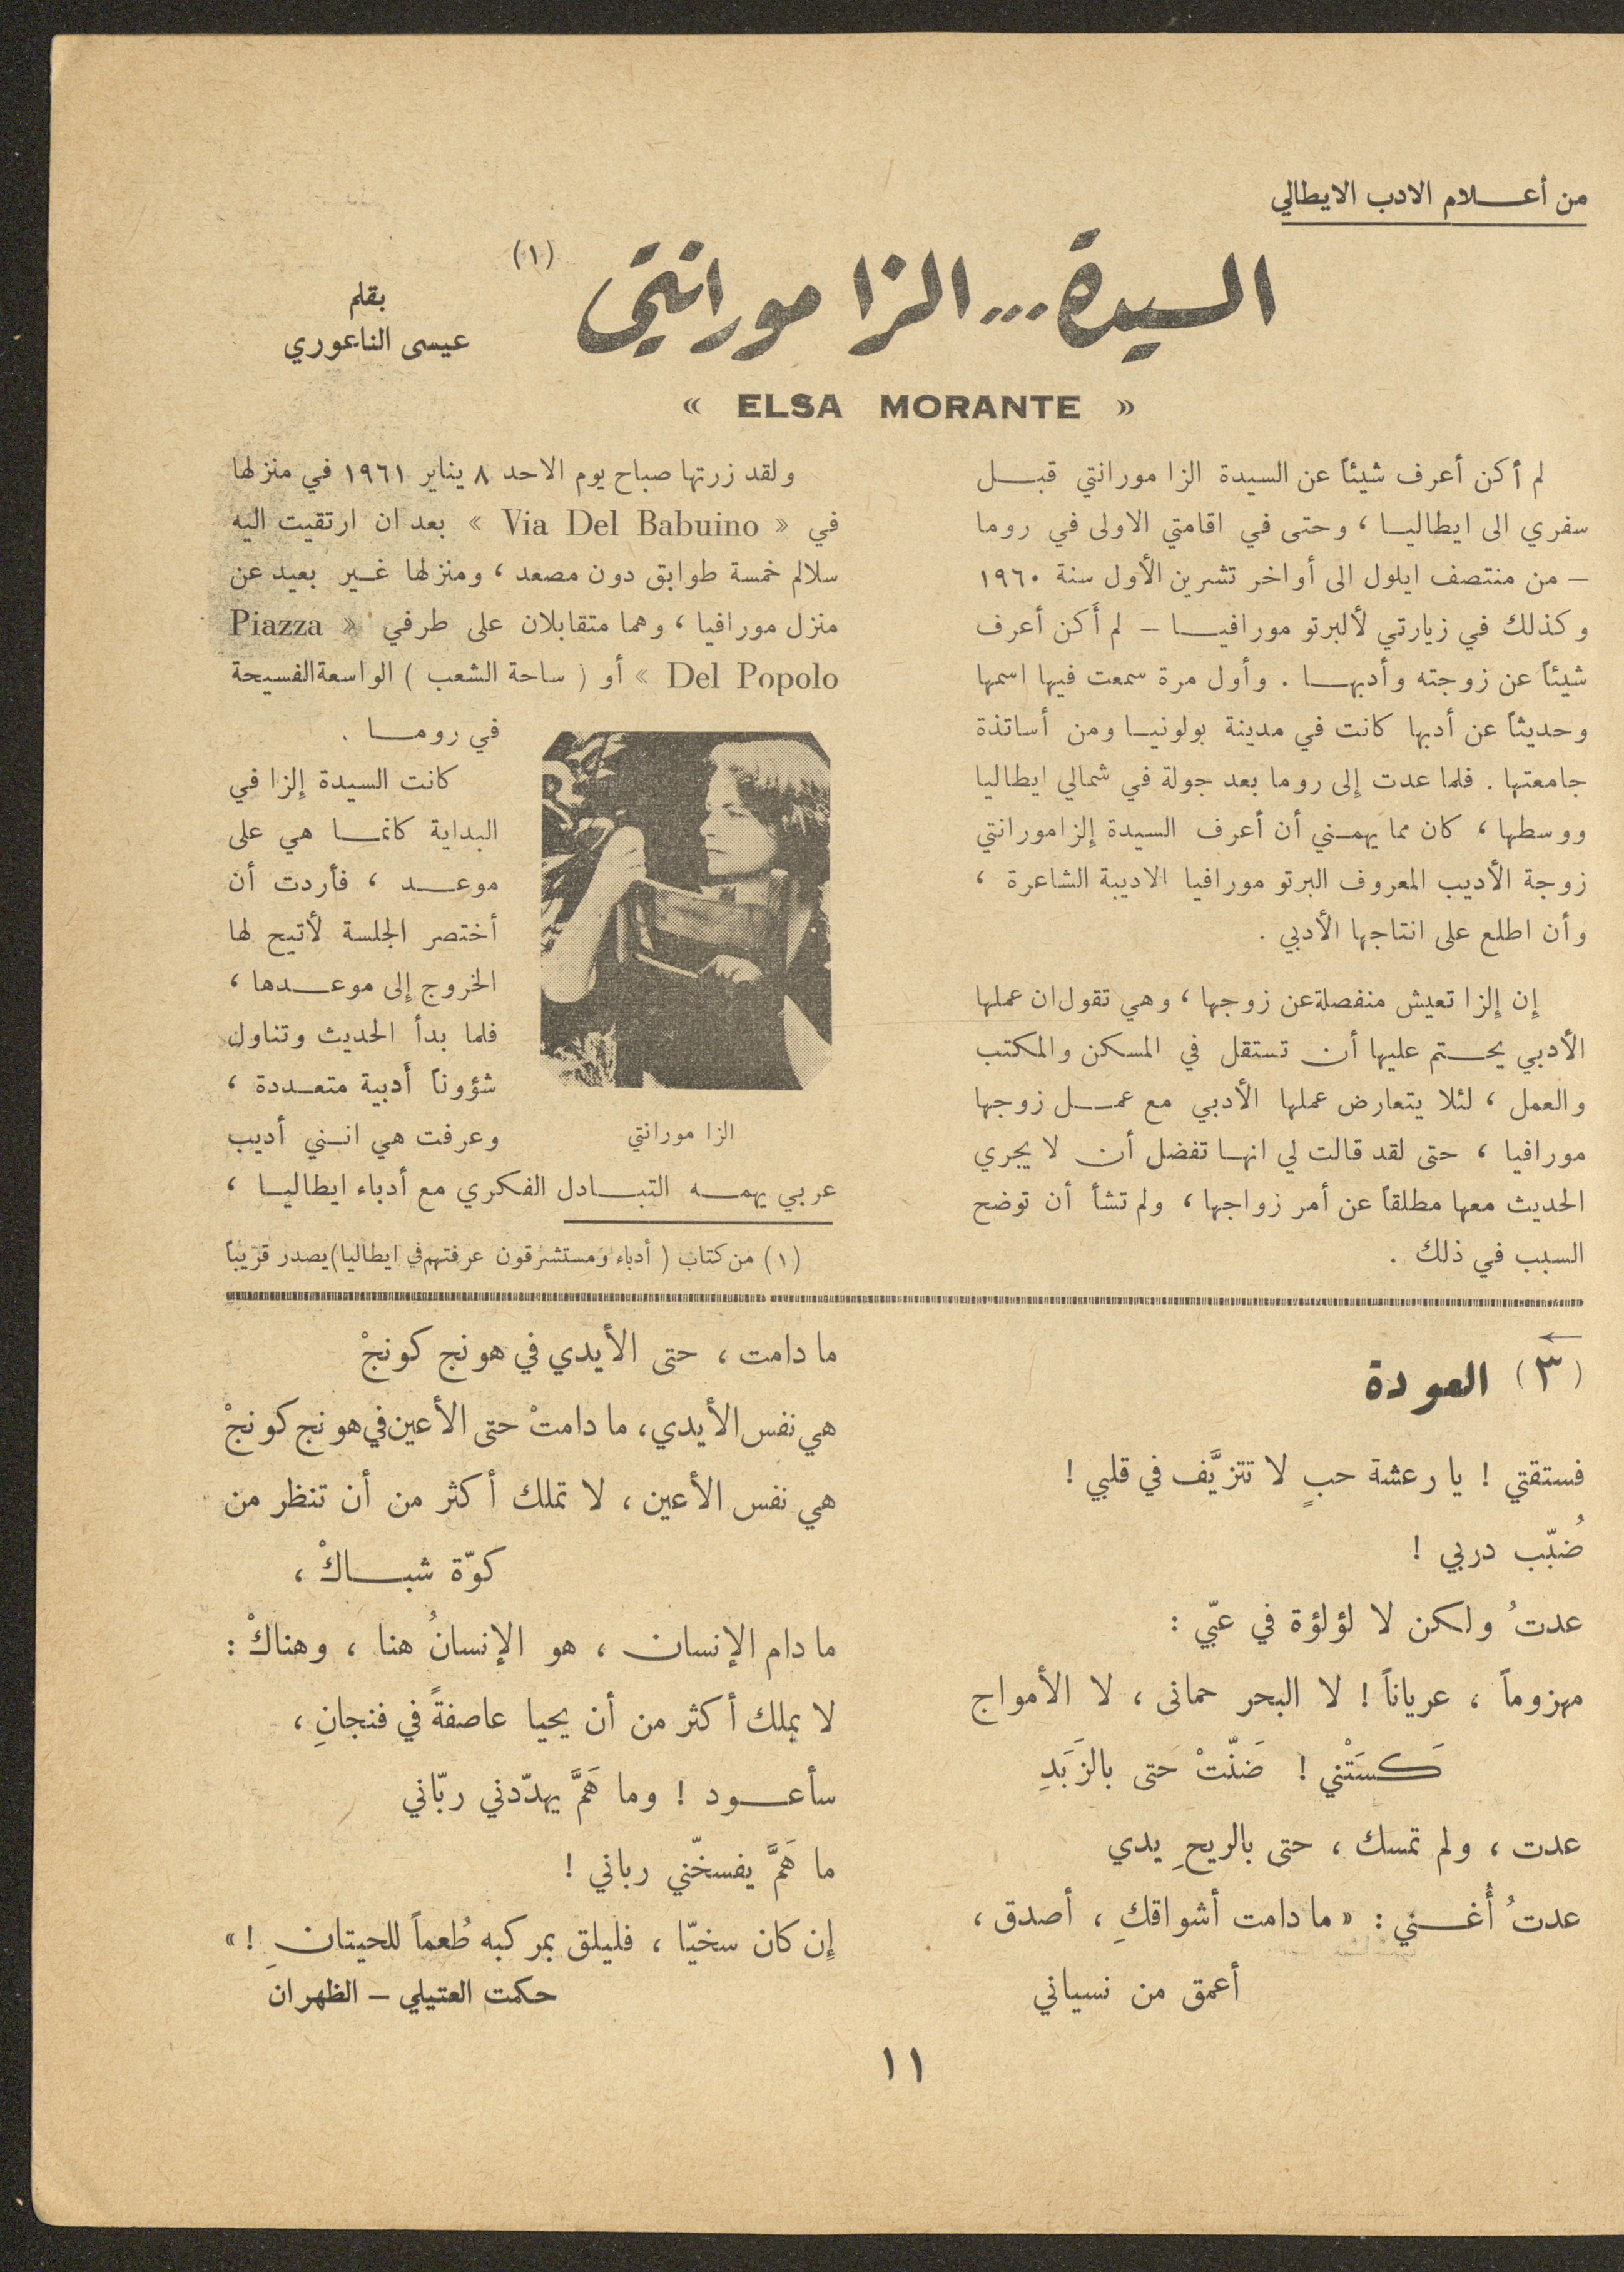 من أعـــلام الادب الايطالي
السيدة ... الزا مورانتي (١)
بقلم
عيسى الناعوري
« ELSA MORANTE »
لم أكن أعرف شيئاً عن السيدة الزا مورانتي قبـــل
سفري الى ايطاليـــا ، وحتى في اقامتي الاولى في روما
– من منتصف ايلول الى أواخر تشرين الأول سنة ١٩٦٠
وكذلك في زيارتي لألبرتو مورافيـــا – لم أكن أعرف
شيئاً عن زوجته وأدبهـــا . وأول مرة سمعت فيها اسمها
وحديثاً عن أدبها كانت في مدينة بولونيـــا ومن أساتذة
جامعتها . فلما عدت إلى روما بعد جولة في شمالي ايطاليا
ووسطها ، كان مما يهمـــني أن أعرف السيدة إلزامورانتي
زوجة الأديب المعروف البرتو مورافيا الاديبة الشاعرة ،
وأن اطلع على انتاجها الأدبي .
إن إلزا تعيش منفصلة عن زوجها ، وهي تقول ان عملها
الأدبي يحـــتم عليها أن تستقل في المسكن والمكتب
والعمل ، لئلا يتعارض عملها الأدبي مع عمـــل زوجها
مورافيا ، حتى لقد قالت لي انهـــا تفضل أن لا يجري
الحديث معها مطلقاً عن أمر زواجها ، ولم تشأ أن توضح
السبب في ذلك .
ولقد زرتها صباح يوم الاحد ٨ يناير ١٩٦١ في منزلها
في « Via Del Babuino » بعد ان ارتقيت اليه
سلالم خمسة طوابق دون مصعد ، ومنزلها غـــير بعيد عن
منزل مورافيا ، وهما متقابلان على طرفي « Piazza
Del Popolo » أو ( ساحة الشعب ) الواسعة الفسيحة
في رومـــا .
كانت السيدة إلزا في
البداية كانمـــا هي على
موعـــد ، فأردت أن
أختصر الجلسة لأتيح لها
الخروج إلى موعـــدها ،
فلما بدأ الحديث وتناول
شؤوناً أدبية متعـــددة ،
وعرفت هي انـــني أديب
الزا مورانتي
عربي يهمـــه التبـــادل الفكري مع أدباء ايطاليـــا ،
(١) من كتاب ( أدباء ومستشرقون عرفتهم في ايطاليا) يصدر قريباً
←
(٣) العودة
فستقتي ! يا رعشة حبٍ لا تتزيَّف في قلبي !
ضُبّب دربي !
عدتُ ولكن لا لؤلؤة في عبّي :
مهزوماً ، عرياناً ! لا البحر حمانى ، لا الأمواج
كَـسَتْني ! ضَنّتْ حتى بالزَبَدِ
عدت ، ولم تمسك ، حتى بالريحِ يدي
عدتُ أُغـــني : « ما دامت أشواقكِ ، أصدق ،
أعمق من نسياني
ما دامت ، حتى الأيدي في هونج كونجْ
هي نفس الأيدي ، ما دامتْ حتى الأعين في هونج كونجْ
هي نفس الأعين ، لا تملك أكثر من أن تنظر من
كوّة شبـــاكْ ،
ما دام الإنسان ، هو الإنسانُ هنا ، وهناكْ :
لا يملك أكثر من أن يحيا عاصفةً في فنجانِ ،
سأعـــود ! وما هَمَّ يهدّدني ربّاني
ما هَمَّ يفسخّني رباني !
إن كان سخيّا ، فليلق بمركبه طُعماً للحيتانِ ! »
حكمت العتيلي – الظهران
١١